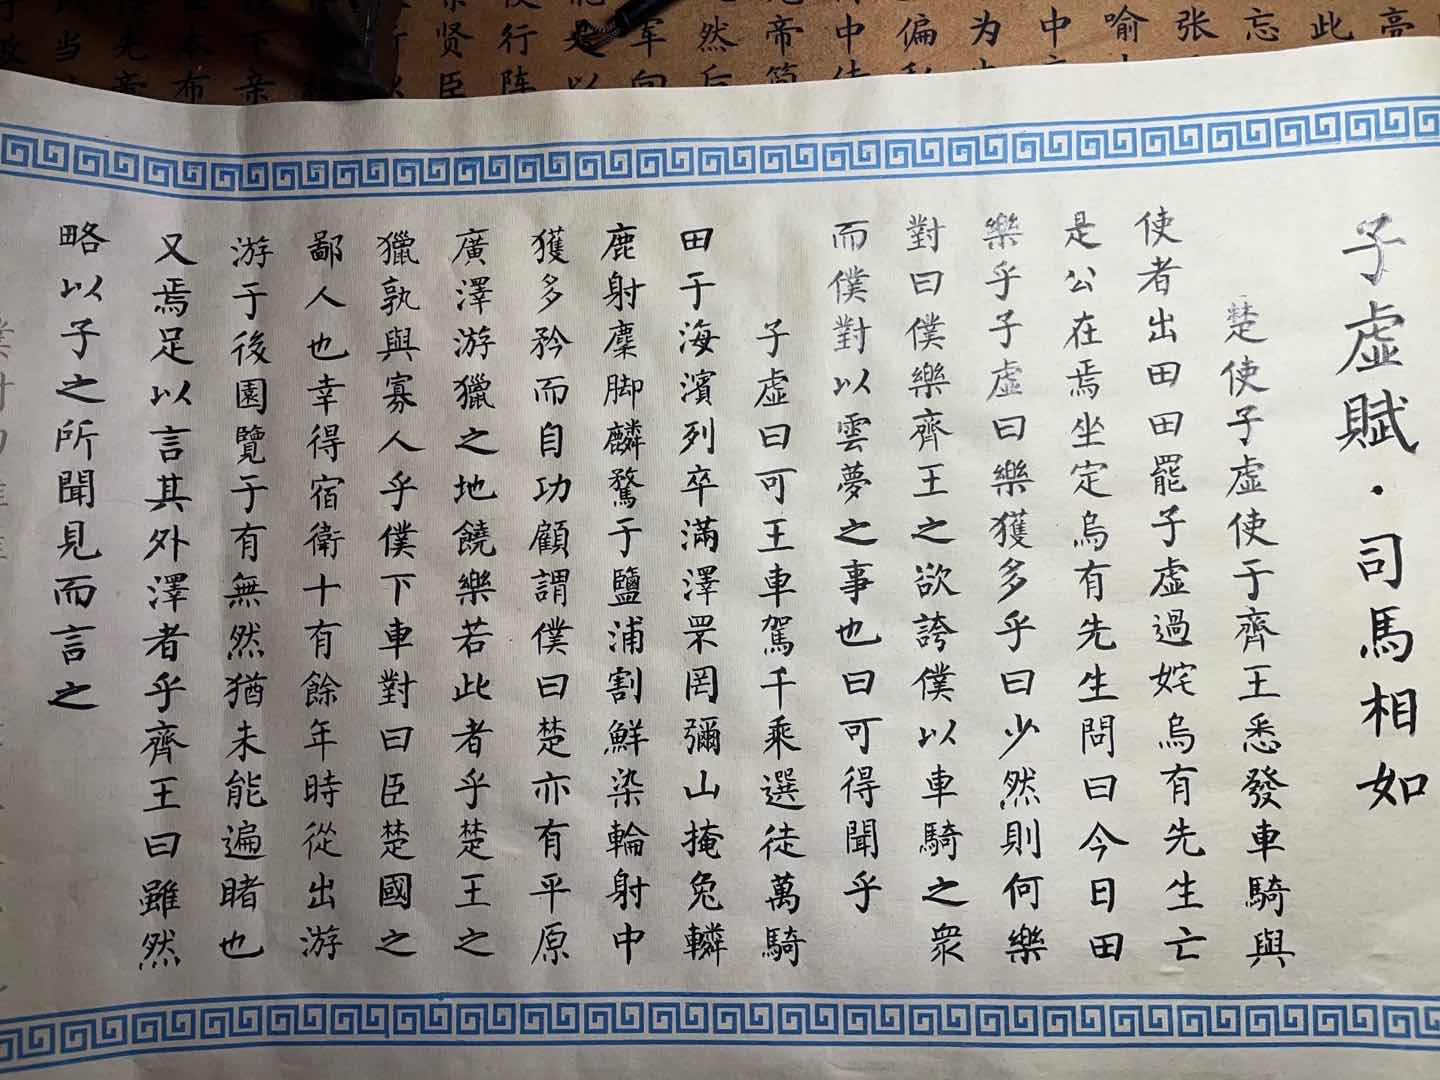 子虛賦·司馬相如
楚使子虛使于齊王悉發車騎與
使者出田田罷子虛過姹烏有先生亡
是公在焉坐定烏有先生問曰今日田
樂乎子虛曰樂獲多乎曰少然則何樂
對曰僕樂齊王之欲誇僕以車騎之衆
而僕對以雲夢之事也曰可得聞乎
子虛曰可王車駕千乘選徒萬騎
田于海濱列卒滿澤罘罔彌山掩兔轔
鹿射麋脚麟騖于鹽浦割鮮染輪射中
獲多矜而自功顧謂僕曰楚亦有平原
廣澤游獵之地饒樂若此者乎楚王之
獵孰與寡人乎僕下車對曰臣楚國之
鄙人也幸得宿衛十有餘年時從出游
游于後園覽于有無然猶未能遍睹也
又焉足以言其外澤者乎齊王曰雖然
略以子之所聞見而言之